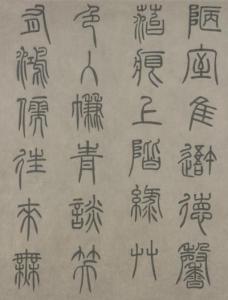 陋室隹吾德馨
菭痕上階綠艸
色入㡘青談笑
有鴻儒往來無